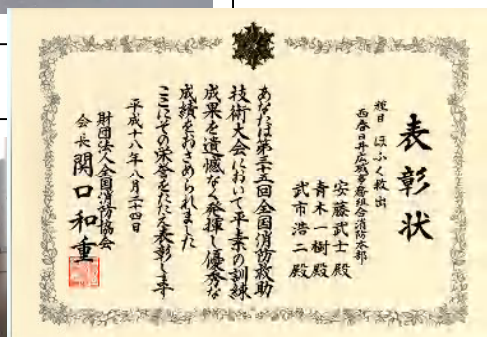 表彰状
種目 ほふく救出
西春日井広域事務組合消防本部
安藤武士殿
青木一樹殿
武市浩二殿
あなたは第三十五回全国消防救助
技術大会において平素の訓練
成果を遺憾なく発揮し優秀な
成績をおさめられました
ここにその栄誉をたたえ表彰します
平成十八年八月二十四日
財団法人全国消防協会
会長 関口和重